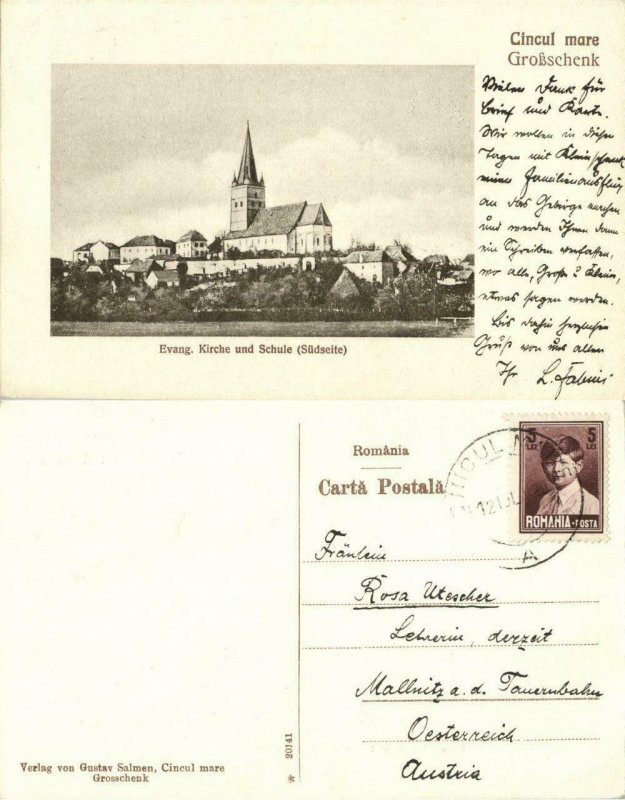 Cincul mare
Großschenk
Vielen Dank für
Brief und Karte.
Wir wollen in diesen
Tagen mit Kleinschenk
einen Familienausflug
an das Gebirge machen
und werden Ihnen dann
ein Schreiben verfassen,
wo alle, Groß- & Klein,
etwas sagen werden.
Bis dahin herzliche
Grüße von uns allen
Ihr L. Fabini
Evang. Kirche und Schule (Südseite)
România
Carta Postală
5 LEI 5 LEI
ROMANIA-POSTA
Fräulein
Rosa Utescher
Lehrerin, derzeit
Mallnitz a. d. Tauernbahn
Oesterreich
Austria
Verlag von Gustav Salmen, Cincul mare
Grosschenk
20141